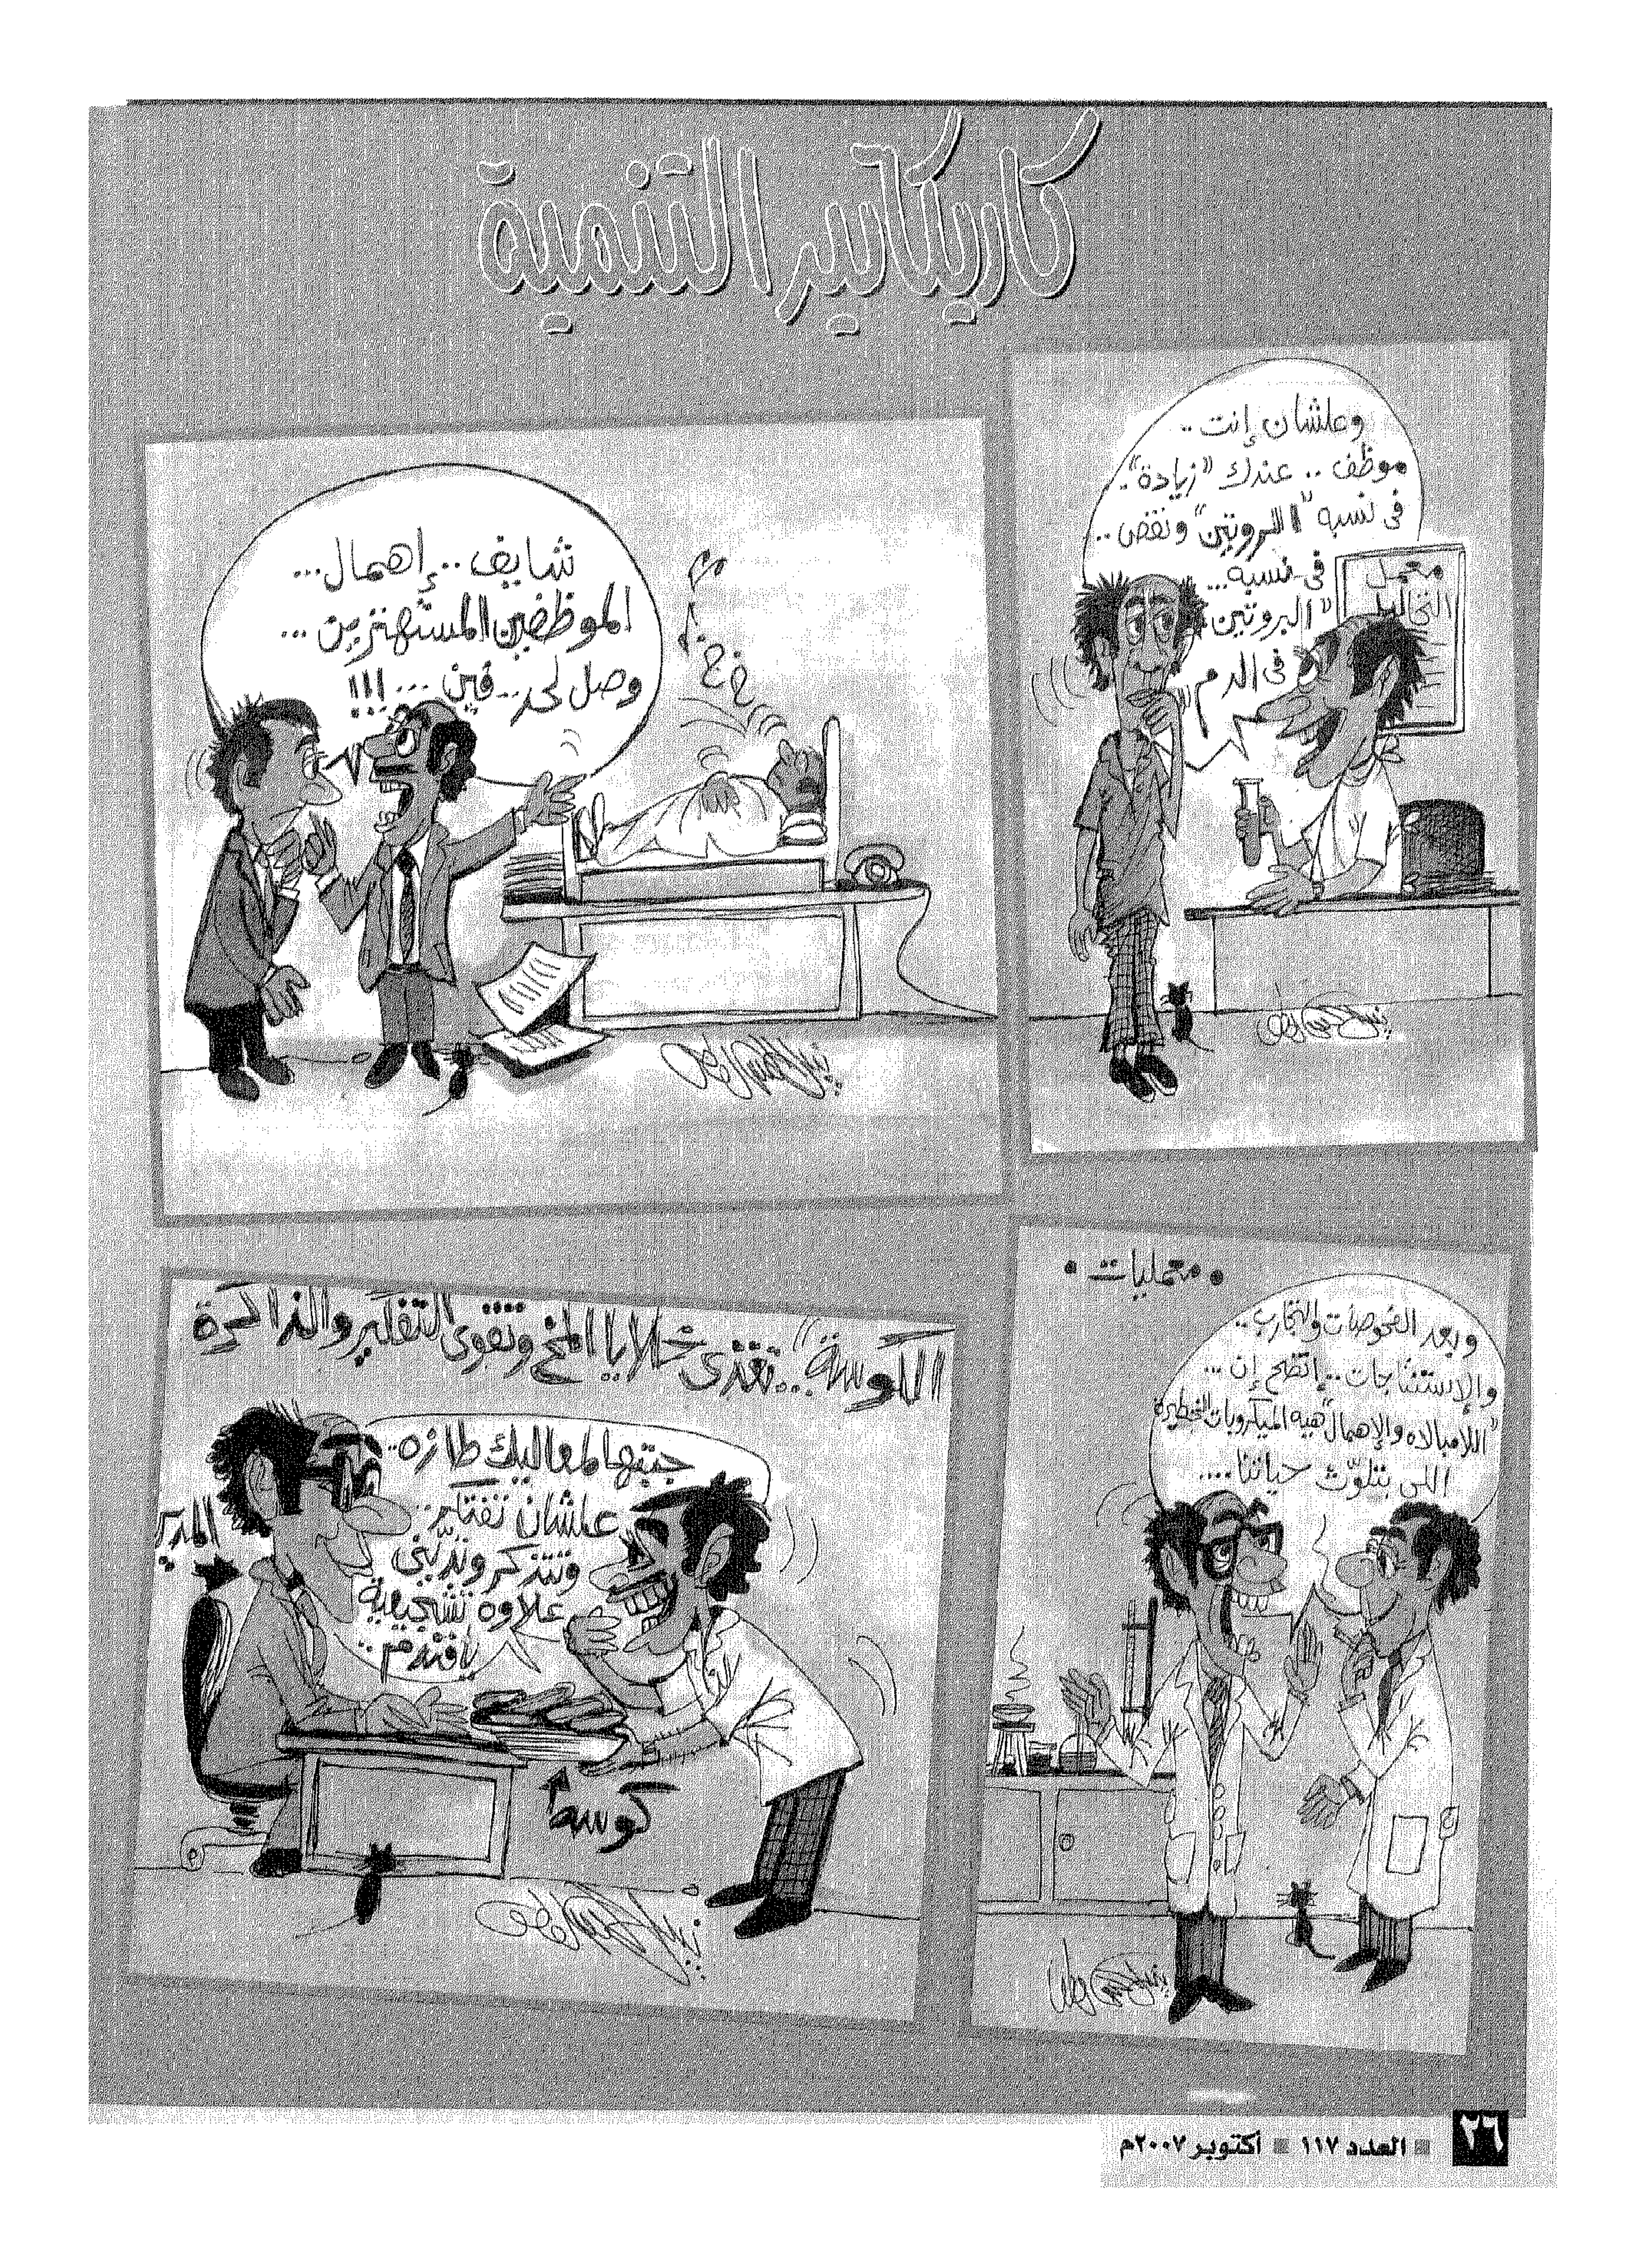 كاريكاتير التنمية
وعلشان إنت..
موظف .. عندك "زيادة"..
فى نسبه "الروتين" ونقص..
فى نسبه...
"البروتين"
فى الدم
معمل
التحاليل
شايف.. إهمال...
الموظفين المستهترين...
وصل لحد.. فين...!!!
خ خ
• معمليات •
وبعد الفحوصات والتجارب..
والإستنتاجات.. إتضح إن...
"اللامبالاه والإهمال" هيه الميكروبات الخطيره
اللى بتلوّث حياتنا....
"الكوسة"... تغذى خلايا المخ وتقوى التفكير والذاكرة
جبتها لمعاليك طازه..
علشان تفتكر..
وتتذكر وتدّينى
علاوه تشجيعية
يافندم..
المدير
كوسه
٢٦ ■ العدد ١١٧ ■ أكتوبر ٢٠٠٧م